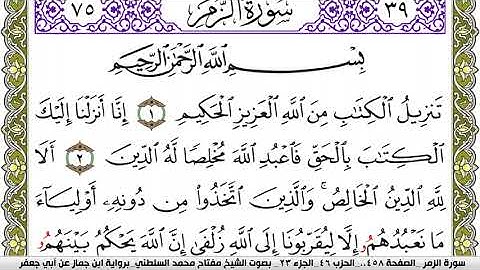 ٣٩ سُورَةُ الزُّمَرِ ٧٥
بِسْمِ اللَّهِ الرَّحْمَٰنِ الرَّحِيمِ
تَنزِيلُ الْكِتَابِ مِنَ اللَّهِ الْعَزِيزِ الْحَكِيمِ ١ إِنَّا أَنزَلْنَا إِلَيْكَ
الْكِتَابَ بِالْحَقِّ فَاعْبُدِ اللَّهَ مُخْلِصًا لَهُ الدِّينَ ٢ أَلَا
لِلَّهِ الدِّينُ الْخَالِصُ وَالَّذِينَ اتَّخَذُوا مِن دُونِهِ أَوْلِيَاءَ
مَا نَعْبُدُهُمُ إِلَّا لِيُقَرِّبُونَا إِلَى اللَّهِ زُلْفَىٰ إِنَّ اللَّهَ يَحْكُمُ بَيْنَهُمُ
سورة الزمر _الصفحة ٤٥٨_ الحزب ٤٦_ الجزء ٢٣ _ بصوت الشيخ مفتاح محمد السلطني _برواية ابن جماز عن أبي جعفر